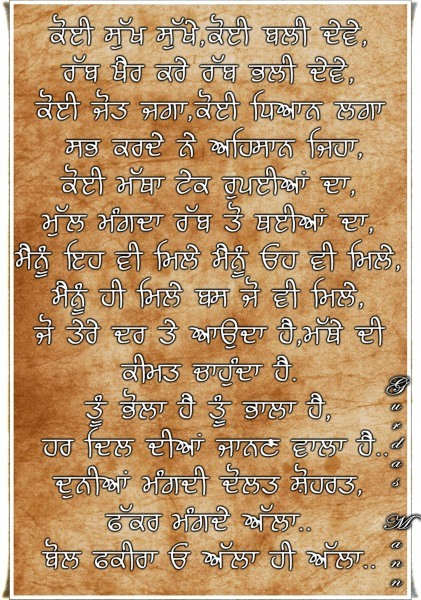 ਕੋਈ ਸੁੱਖ ਸੁੱਖੇ,ਕੋਈ ਬਲੀ ਦੇਵੇ,
ਰੱਬ ਖੈਰ ਕਰੇ ਰੱਬ ਭਲੀ ਦੇਵੇ,
ਕੋਈ ਜੋਤ ਜਗਾ,ਕੋਈ ਧਿਆਨ ਲਗਾ
ਸਭ ਕਰਦੇ ਨੇ ਅਹਿਸਾਨ ਜਿਹਾ,
ਕੋਈ ਮੱਥਾ ਟੇਕ ਰੁਪਈਆਂ ਦਾ,
ਮੁੱਲ ਮੰਗਦਾ ਰੱਬ ਤੋ ਥਈਆਂ ਦਾ,
ਮੈਨੂੰ ਇਹ ਵੀ ਮਿਲੇ ਮੈਨੂੰ ਓਹ ਵੀ ਮਿਲੇ,
ਮੈਨੂੰ ਹੀ ਮਿਲੇ ਬਸ ਜੋ ਵੀ ਮਿਲੇ,
ਜੋ ਤੇਰੇ ਦਰ ਤੇ ਆਉਦਾ ਹੈ,ਮੱਥੇ ਦੀ
ਕੀਮਤ ਚਾਹੁੰਦਾ ਹੈ.
ਤੂੰ ਭੋਲਾ ਹੈ ਤੂੰ ਭਾਲਾ ਹੈ,
ਹਰ ਦਿਲ ਦੀਆਂ ਜਾਨਣ ਵਾਲਾ ਹੈ..
ਦੁਨੀਆਂ ਮੰਗਦੀ ਦੋਲਤ ਸ਼ੋਹਰਤ,
ਫੱਕਰ ਮੰਗਦੇ ਅੱਲਾ..
ਬੋਲ ਫਕੀਰਾ ਓ ਅੱਲਾ ਹੀ ਅੱਲਾ..
Gurdas Mann